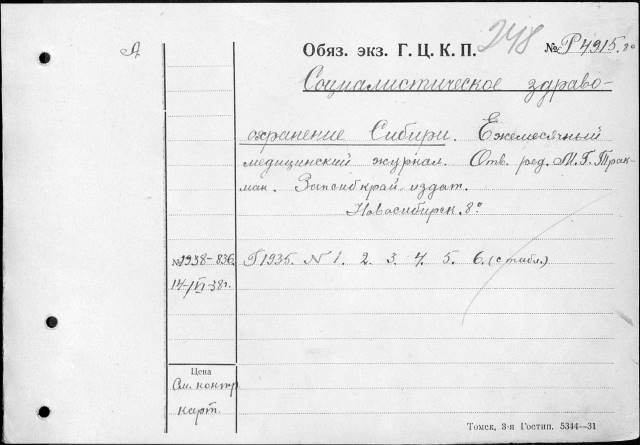 Обяз. экз. Г. Ц. К. П. 248 № Р4915. 8°
Социалистическое здраво-
охранение Сибири. Ежемесячный
медицинский журнал. Отв. ред. М. Г. Трак-
ман. Запсибкрайиздат.
Новосибирск. 8°
№1938-836. Г1935. N 1. 2. 3. 4. 5. 6. (с табл.)
14/VI-38г.
Цена
См. контр.
карт.
Томск, 3-я Гостип. 5344—31